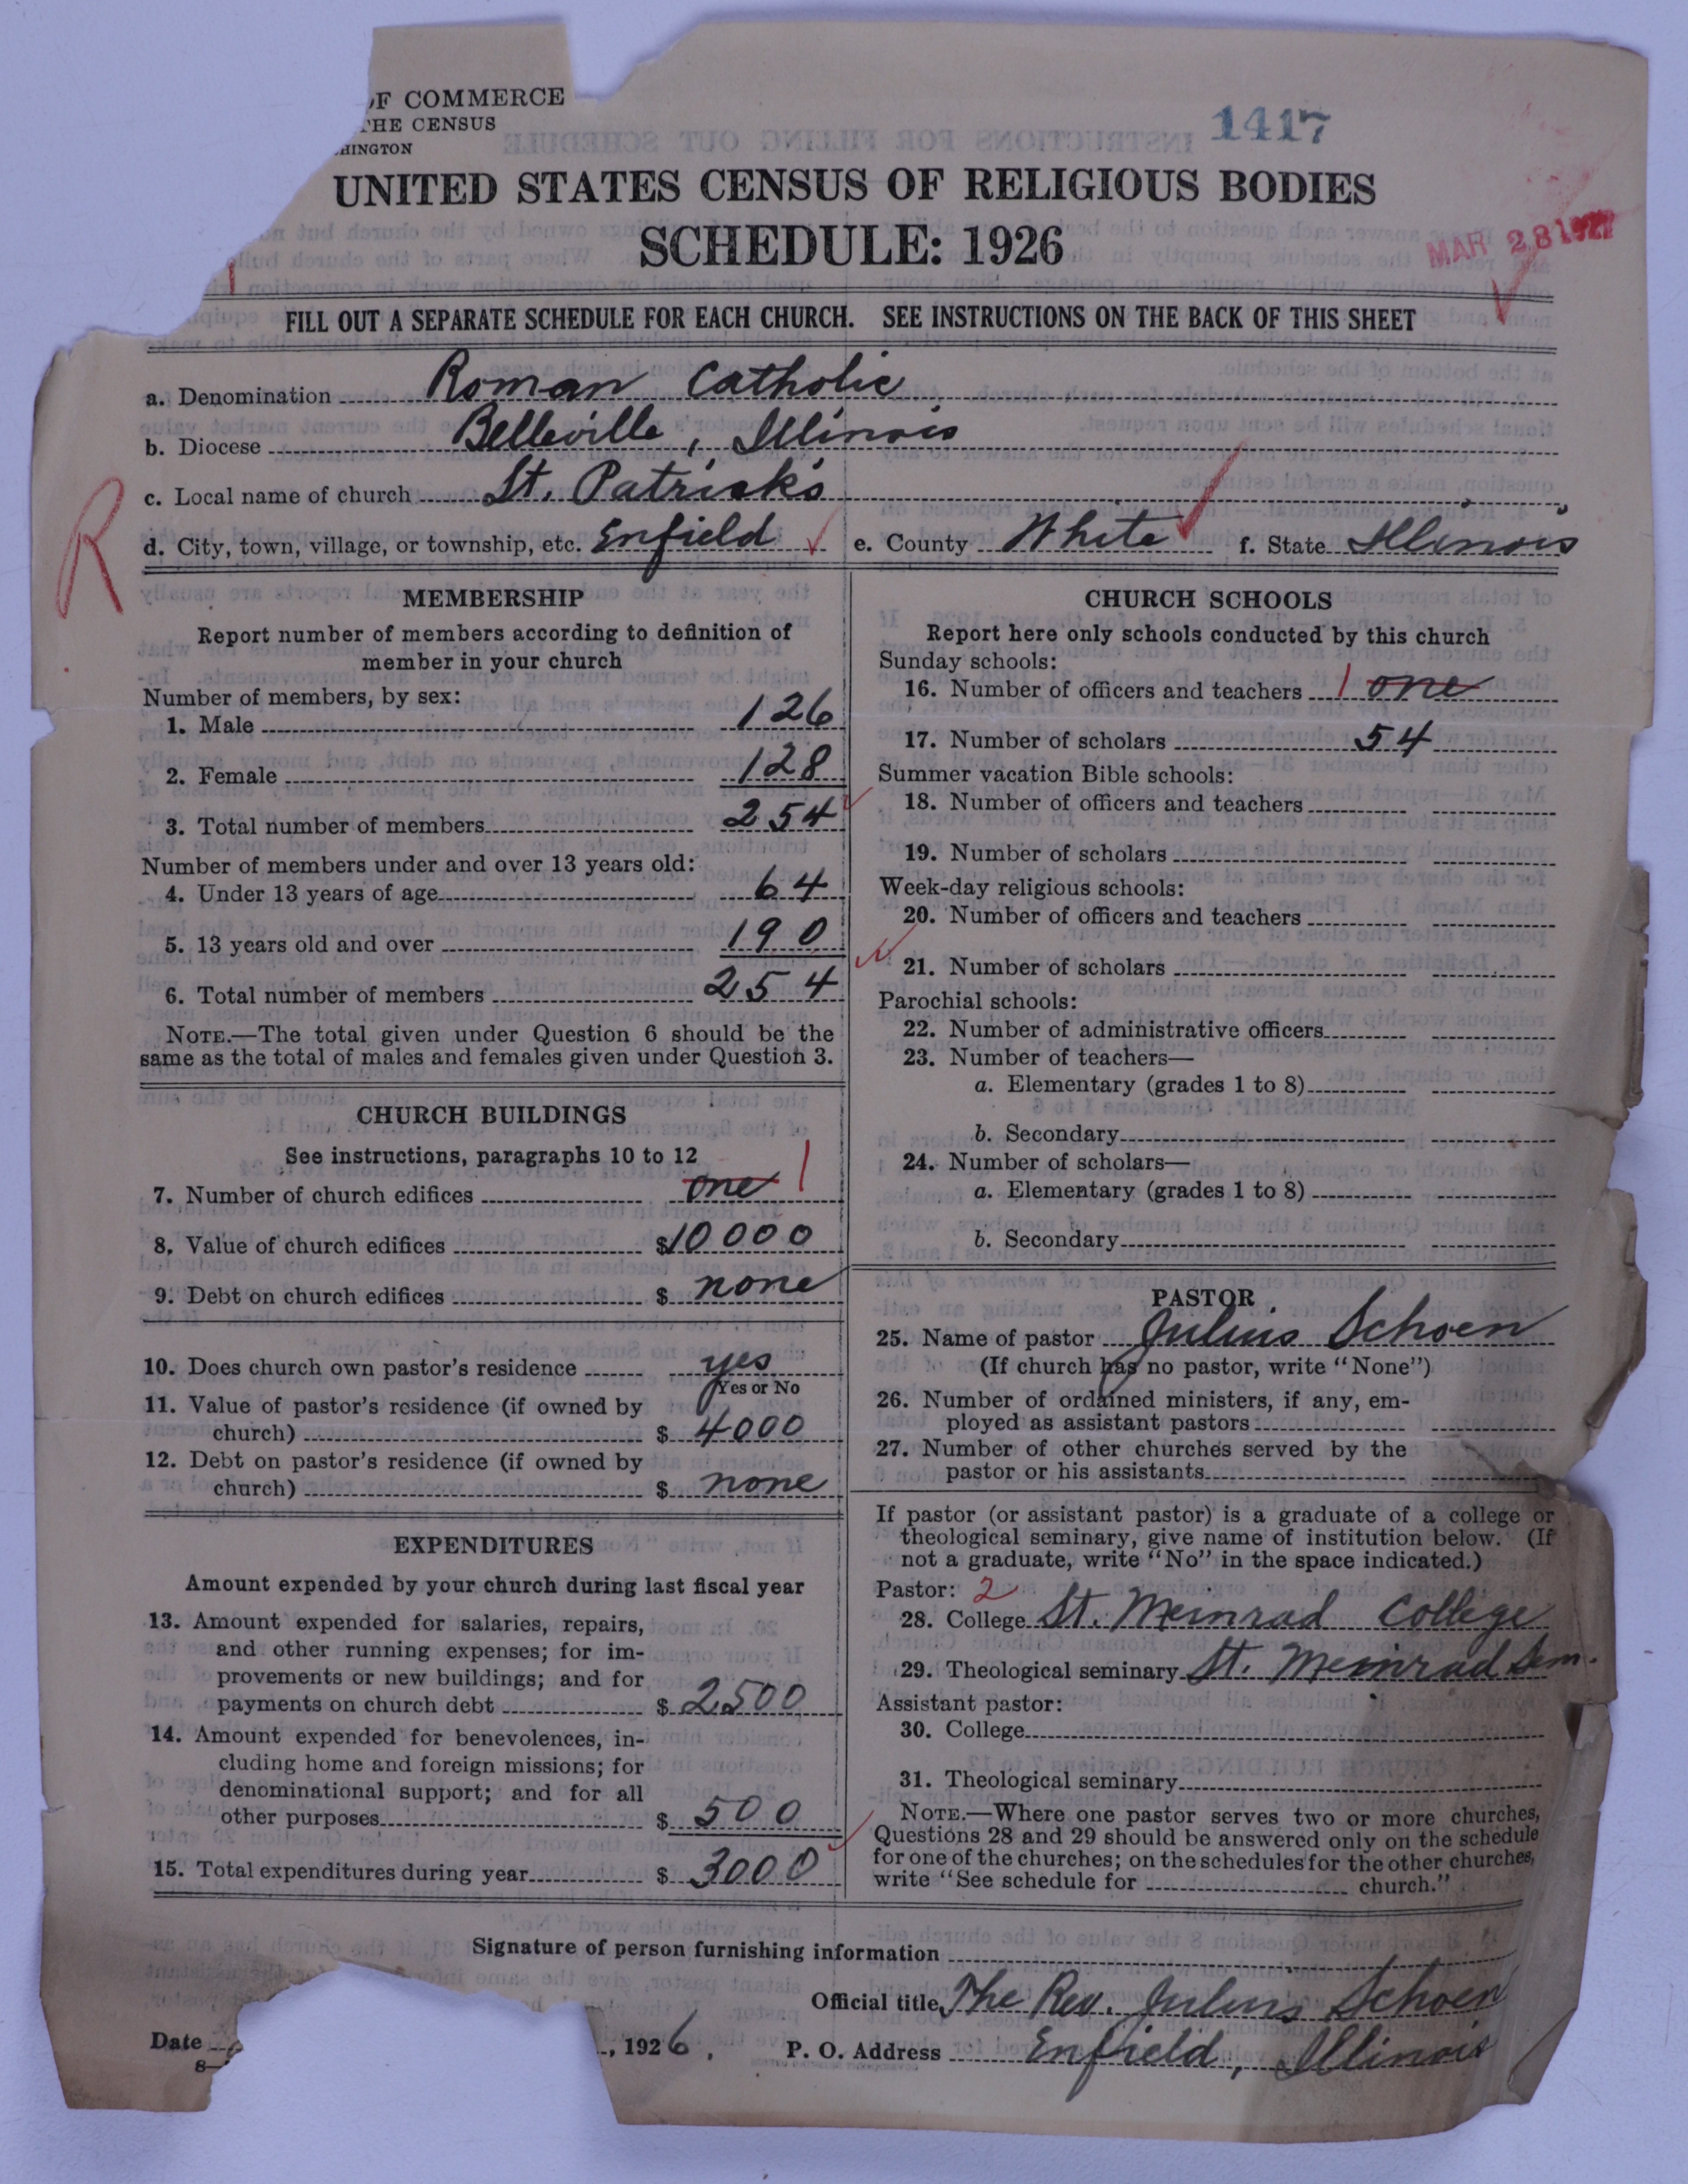 OF COMMERCE
THE CENSUS
HINGTON
1417
UNITED STATES CENSUS OF RELIGIOUS BODIES
SCHEDULE: 1926
MAR 28 1927
FILL OUT A SEPARATE SCHEDULE FOR EACH CHURCH. SEE INSTRUCTIONS ON THE BACK OF THIS SHEET
a. Denomination Roman Catholic
b. Diocese Belleville, Illinois
c. Local name of church St. Patrick's
R
d. City, town, village, or township, etc. Enfield e. County White f. State Illinois
MEMBERSHIP
Report number of members according to definition of
member in your church
Number of members, by sex:
1. Male 126
2. Female 128
3. Total number of members 254
Number of members under and over 13 years old:
4. Under 13 years of age 64
5. 13 years old and over 190
6. Total number of members 254
NOTE.—The total given under Question 6 should be the
same as the total of males and females given under Question 3.
CHURCH BUILDINGS
See instructions, paragraphs 10 to 12
7. Number of church edifices one 1
8. Value of church edifices $10000
9. Debt on church edifices $ none
10. Does church own pastor's residence yes
Yes or No
11. Value of pastor's residence (if owned by
church) $ 4000
12. Debt on pastor's residence (if owned by
church) $ none
EXPENDITURES
Amount expended by your church during last fiscal year
13. Amount expended for salaries, repairs,
and other running expenses; for im-
provements or new buildings; and for
payments on church debt $ 2500
14. Amount expended for benevolences, in-
cluding home and foreign missions; for
denominational support; and for all
other purposes $ 500
15. Total expenditures during year $ 3000
CHURCH SCHOOLS
Report here only schools conducted by this church
Sunday schools:
16. Number of officers and teachers 1 one
17. Number of scholars 54
Summer vacation Bible schools:
18. Number of officers and teachers
19. Number of scholars
Week-day religious schools:
20. Number of officers and teachers
21. Number of scholars
Parochial schools:
22. Number of administrative officers
23. Number of teachers—
a. Elementary (grades 1 to 8)
b. Secondary
24. Number of scholars—
a. Elementary (grades 1 to 8)
b. Secondary
PASTOR
25. Name of pastor Julius Schoen
(If church has no pastor, write "None")
26. Number of ordained ministers, if any, em-
ployed as assistant pastors
27. Number of other churches served by the
pastor or his assistants
If pastor (or assistant pastor) is a graduate of a college or
theological seminary, give name of institution below. (If
not a graduate, write "No" in the space indicated.)
Pastor: 2
28. College St. Meinrad College
29. Theological seminary St. Meinrad Sem.
Assistant pastor:
30. College
31. Theological seminary
NOTE.—Where one pastor serves two or more churches,
Questions 28 and 29 should be answered only on the schedule
for one of the churches; on the schedules for the other churches,
write "See schedule for church."
Signature of person furnishing information
Official title The Rev. Julius Schoen
Date , 1926. P. O. Address Enfield, Illinois
8—